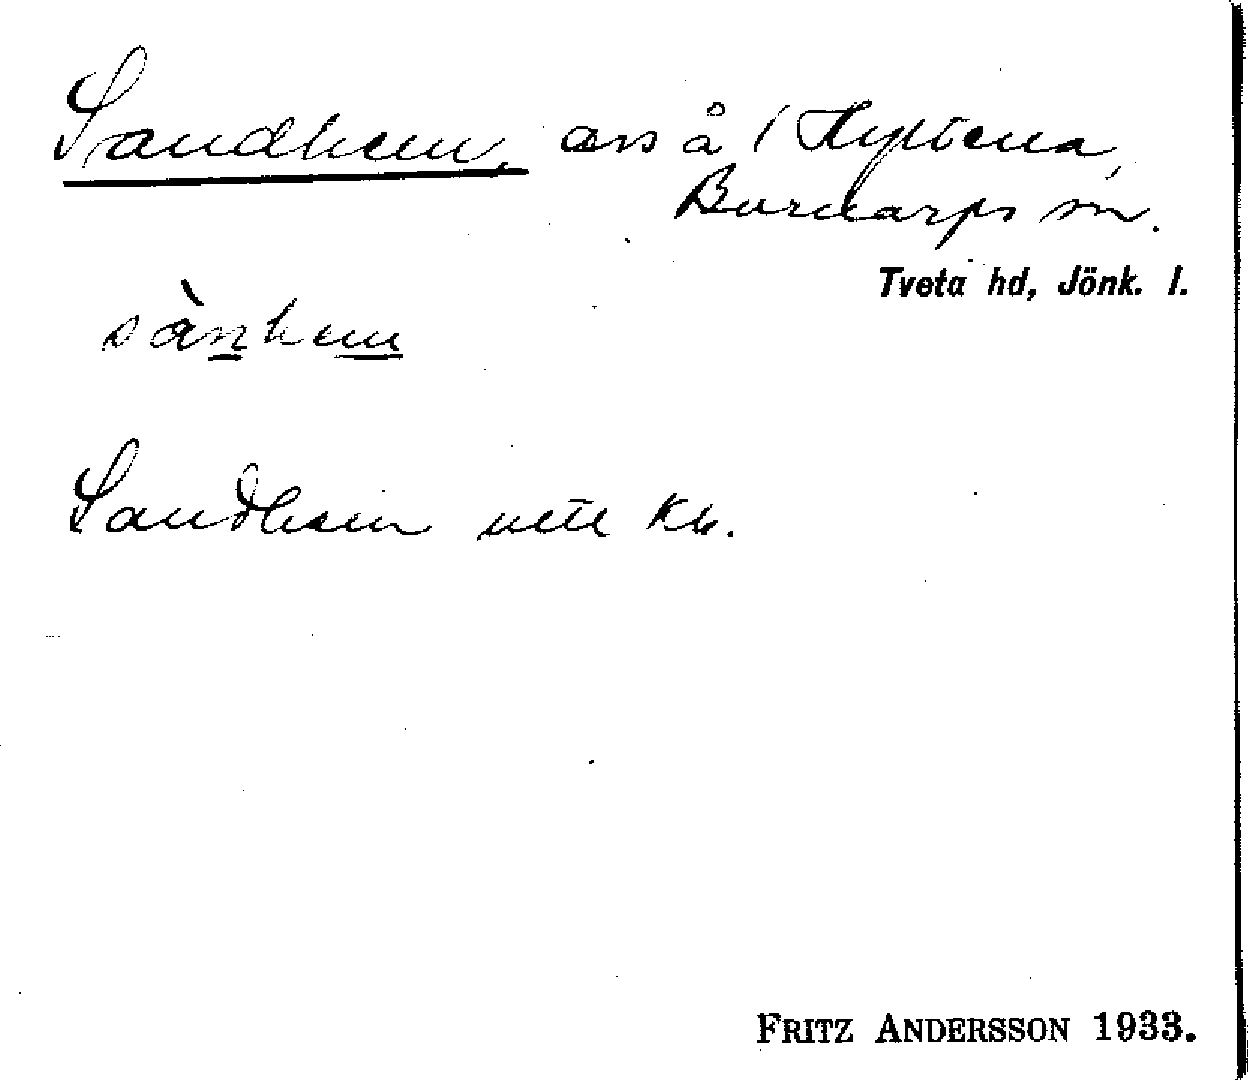 Sandhem, avs å 1 Hyltena,
Barnarps sn.
Tveta hd, Jönk. l.
sànhem
Sandhem Kb.
FRITZ ANDERSSON 1933.